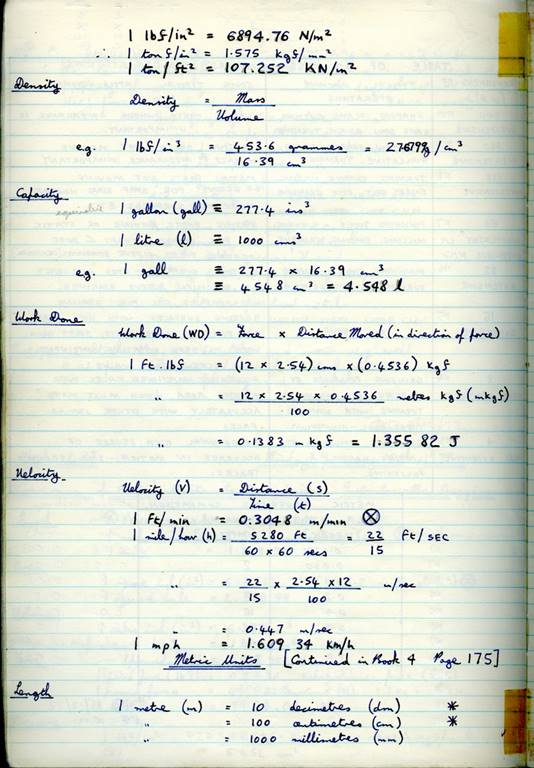 1 lbf/in² = 6894.76 N/m²
∴ 1 tonf/in² = 1.575 kgf/mm²
1 ton/ft² = 107.252 KN/m²
Density
Density = Mass
Volume
e.g. 1 lbf/in³ = 453.6 grammes = g/cm³
16.39 cm³
Capacity
1 gallon (gall) ≡ 277.4 ins³
1 litre (l) ≡ 1000 cms³
e.g. 1 gall ≡ 277.4 × 16.39 cm³
≡ 4548 cm³ = 4.548 l
Work Done
Work Done (WD) = Force × Distance Moved (in direction of force)
1 Ft. lbf = (12 × 2.54) cms × (0.4536) Kgf
" = 12 × 2.54 × 0.4536 metres Kgf (mkgf)
100
" = 0.1383 m Kgf = 1.355 82 J
Velocity
Velocity (V) = Distance (s)
Time (t)
1 Ft/min = 0.3048 m/min ⊗
1 mile/hour (h) = 5280 Ft = 22 Ft/SEC
60 × 60 secs 15
" = 22 × 2.54 × 12 m/sec
15 100
" = 0.447 m/sec
1 mph = 1.609 34 Km/h
Metric Units [Continued in Book 4 Page 175]
Length
1 metre (m) = 10 decimetres (dm) *
" = 100 centimetres (cm) *
" = 1000 millimetres (mm)